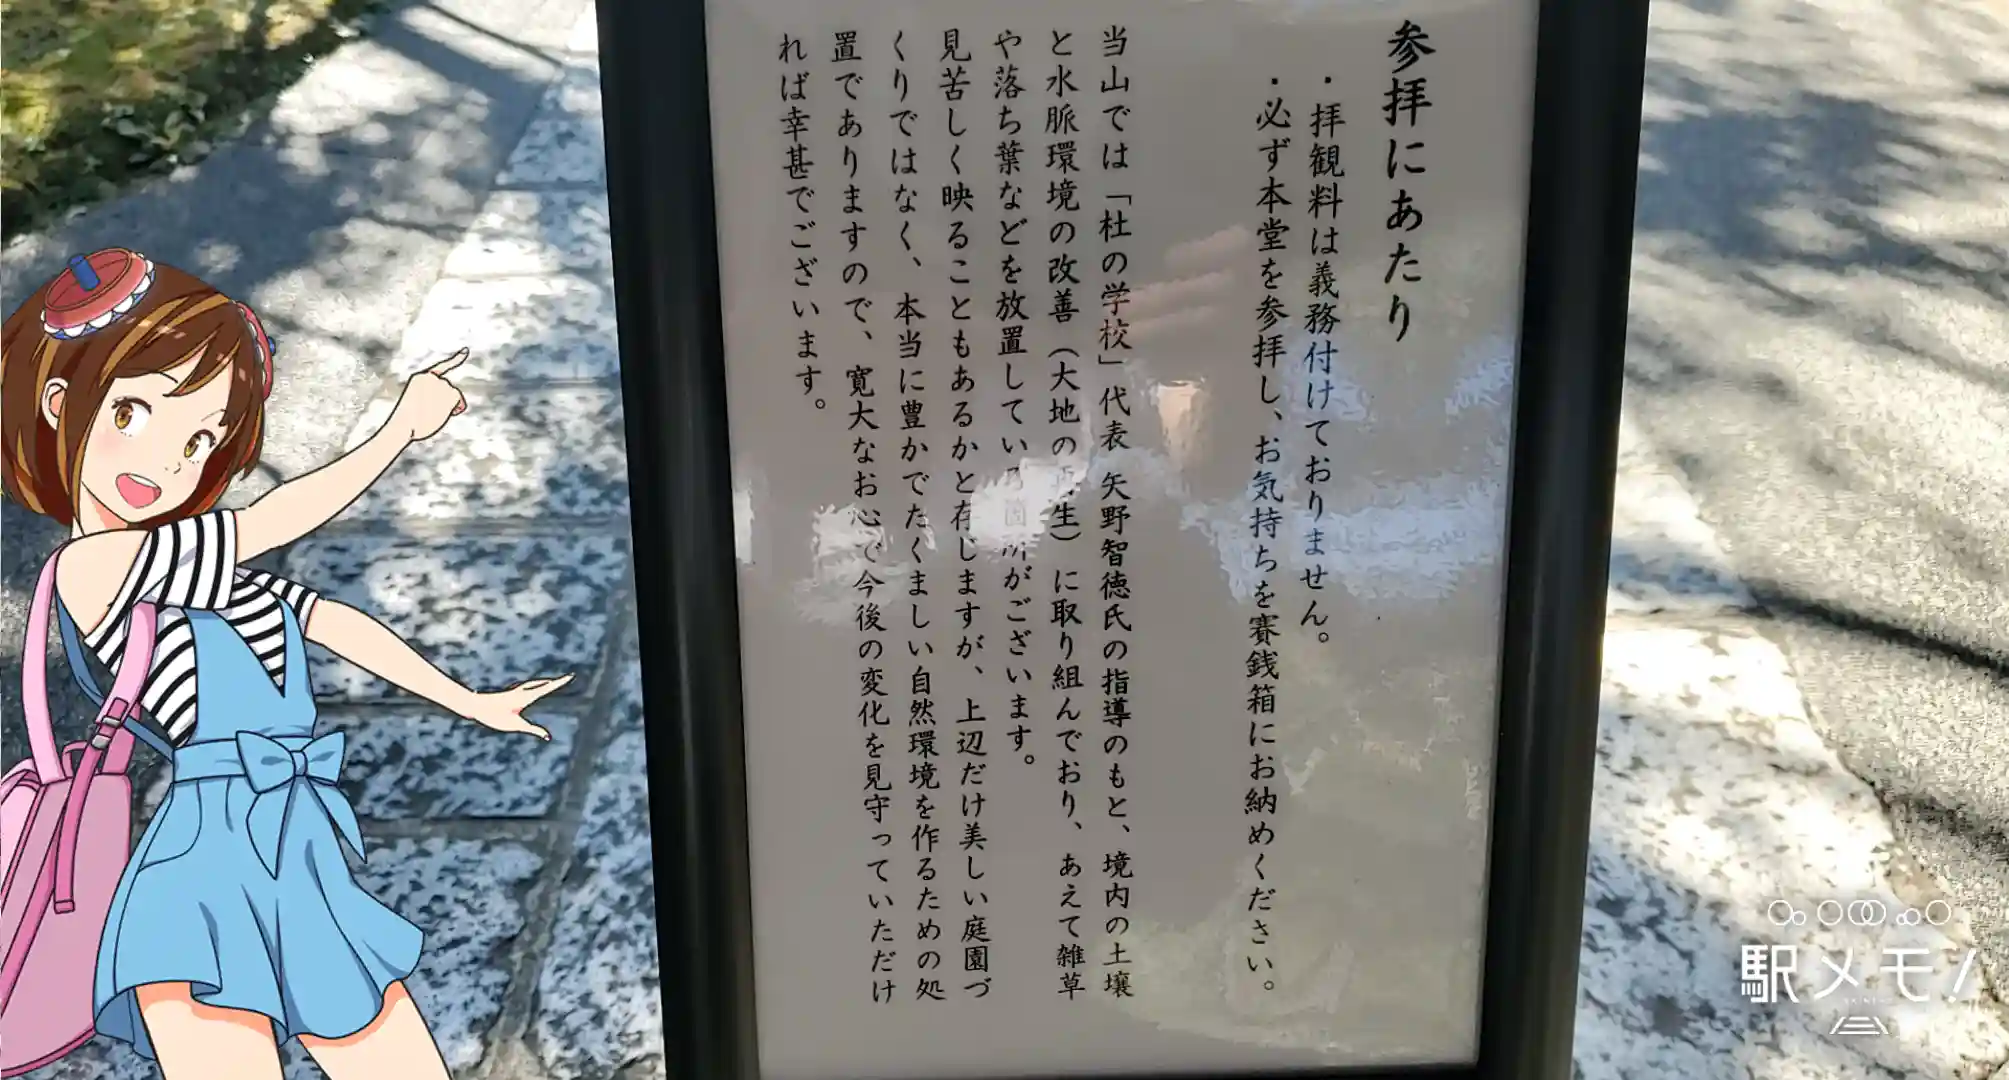 参拝にあたり
・拝観料は義務付けておりません。
・必ず本堂を参拝し、お気持ちを賽銭箱にお納めください。
当山では「杜の学校」代表 矢野智徳氏の指導のもと、境内の土壌
と水脈環境の改善（大地の再生）に取り組んでおり、あえて雑草
や落ち葉などを放置している箇所がございます。
見苦しく映ることもあるかと存じますが、上辺だけ美しい庭園づ
くりではなく、本当に豊かでたくましい自然環境を作るための処
置でありますので、寛大なお心で今後の変化を見守っていただけ
れば幸甚でございます。
駅メモ!